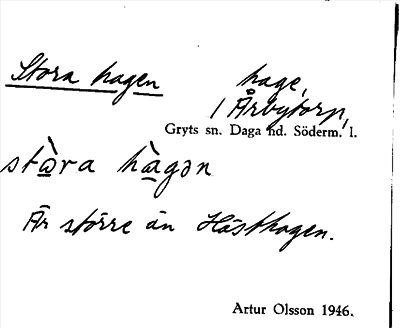 Stora hagen
hage,
/ Årbytorp,
Gryts sn. Daga hd. Söderm. l.
stὼ̲ra hὰ̲gən
Är större än Hästhagen.
Artur Olsson 1946.